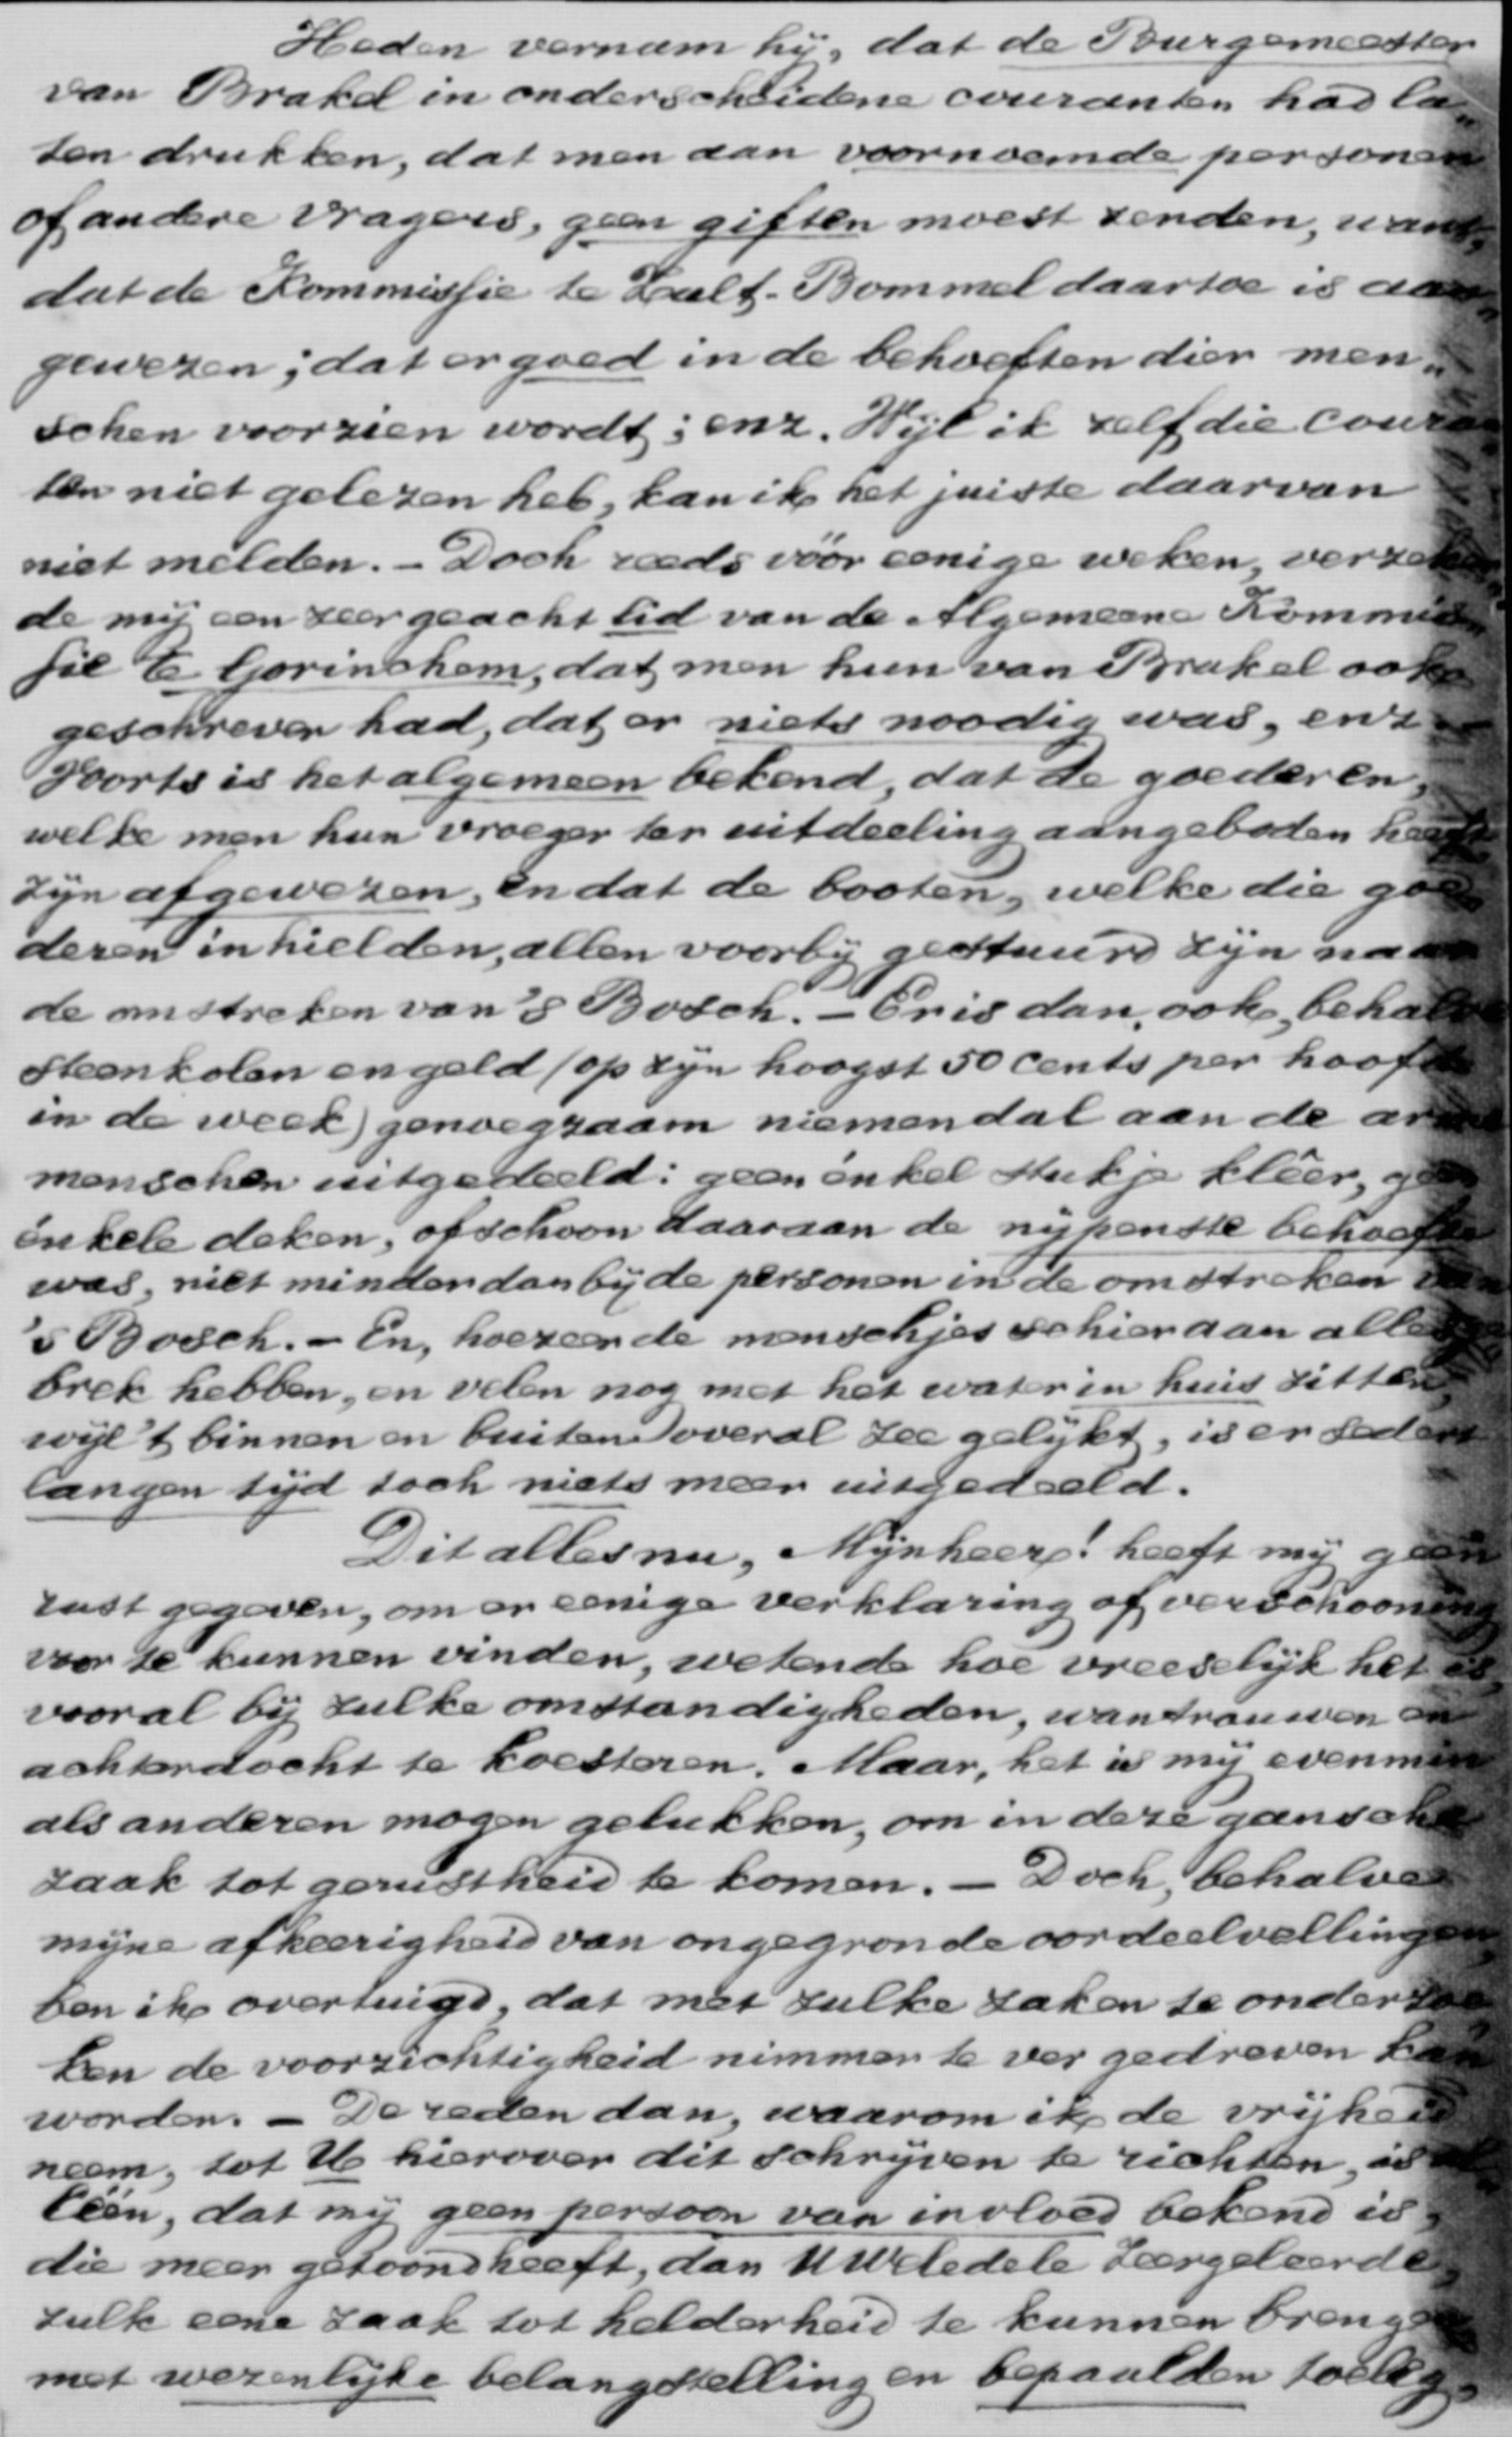 Heden vernam hij, dat de Burgemeester
van Brakel in onderscheidene couranten had la„
ten drukken, dat men aan voornoemde personen
of andere vragers, geen giften moest zenden, want,
dat de Kommissie te Zalt-Bommel daartoe is aan„
gewezen; dat er goed in de behoeften dier men„
schen voorzien wordt; enz. Wijl ik zelf die couran
ten niet gelezen heb, kan ik het juiste daarvan
niet melden. – Doch reeds vóór eenige weken, verzeker„
de mij een zeer geacht lid van de Algemeene Kommis„
sie te Gorinchem, dat men hun van Brakel ook
geschreven had, dat er niets noodig was, enz –
Voorts is het algemeen bekend, dat de goederen,
welke men hun vroeger ter uitdeeling aangeboden heeft
zijn afgewezen, en dat de booten, welke die goe„
deren inhielden, allen voorbij gestuurd zijn naar
de omstreken van 's Bosch. – Er is dan ook, behalve
steenkolen en geld (op zijn hoogst 50 cents per hoofd
in de week) genoegzaam niemendal aan de arme
menschen uitgedeeld: geen énkel stukje klêer, geen
énkele deken, ofschoon daaraan de nijpenste behoefte
was, niet minder dan bij de personen in de omstreken van
's Bosch. – En, hoezeer de menschjes schier aan alles ge
brek hebben, en velen nog met het water in huis zitten,
wijl 't binnen en buiten overal zee gelijkt, is er sedert
langen tijd toch niets meer uitgedeeld.
Dit alles nu, Mijnheer! heeft mij geen
rust gegeven, om er eenige verklaring of verschooning
voor te kunnen vinden, wetende hoe vreeselijk het is,
vooral bij zulke omstandigheden, wantrouwen en
achterdocht te koesteren. Maar, het is mij evenmin
als anderen mogen gelukken, om in deze gansche
zaak tot gerustheid te komen. – Doch, behalve
mijne afkeerigheid van ongegronde oordeelvellingen,
ben ik overtuigd, dat met zulke zaken te onderzoe„
ken de voorzichtigheid nimmer te ver gedreven kan
worden. – De reden dan, waarom ik de vrijheid
neem, tot U hierover dit schrijven te richten, is al„
léén, dat mij geen persoon van invloed bekend is,
die meer getoond heeft, dan UWeledele Zeergeleerde,
zulk eene zaak tot helderheid te kunnen brengen
met wezenlijke belangstelling en bepaalden toeleg,